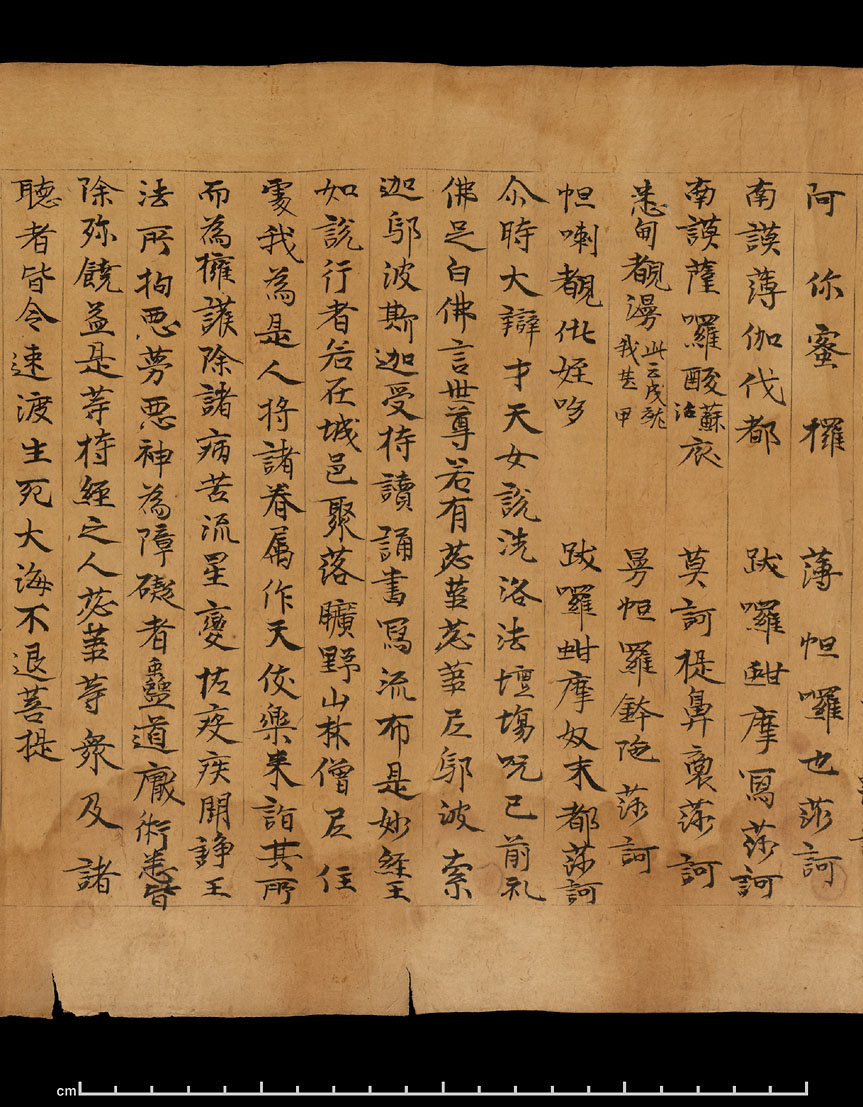 阿你蜜攞 薄怛囉也莎訶
南謨薄伽伐都 跋囉蚶摩寫莎訶
南謨薩囉酸蘇活底 莫訶提鼻裒莎訶
悉甸覩漫此云成就我某甲 曼怛羅鉢陀莎訶
怛喇覩仳姪哆 跋囉蚶摩奴末都莎訶
尒時大辯才天女說洗浴法壇塲呪已前礼
佛足白佛言世尊若有苾蒭苾蒭尼鄔波索
迦鄔波斯迦受持讀誦書寫流布是妙經王
如說行者若在城邑聚落曠野山林僧尼住
處我為是人將諸眷属作天伎樂来詣其所
而為擁護除諸病苦流星變恠疫疾鬪諍王
法所拘惡夢惡神為障礙者蠱道猒術悉皆
除殄饒益是等持經之人苾蒭等衆及諸
聽者皆令速渡生死大海不退菩提